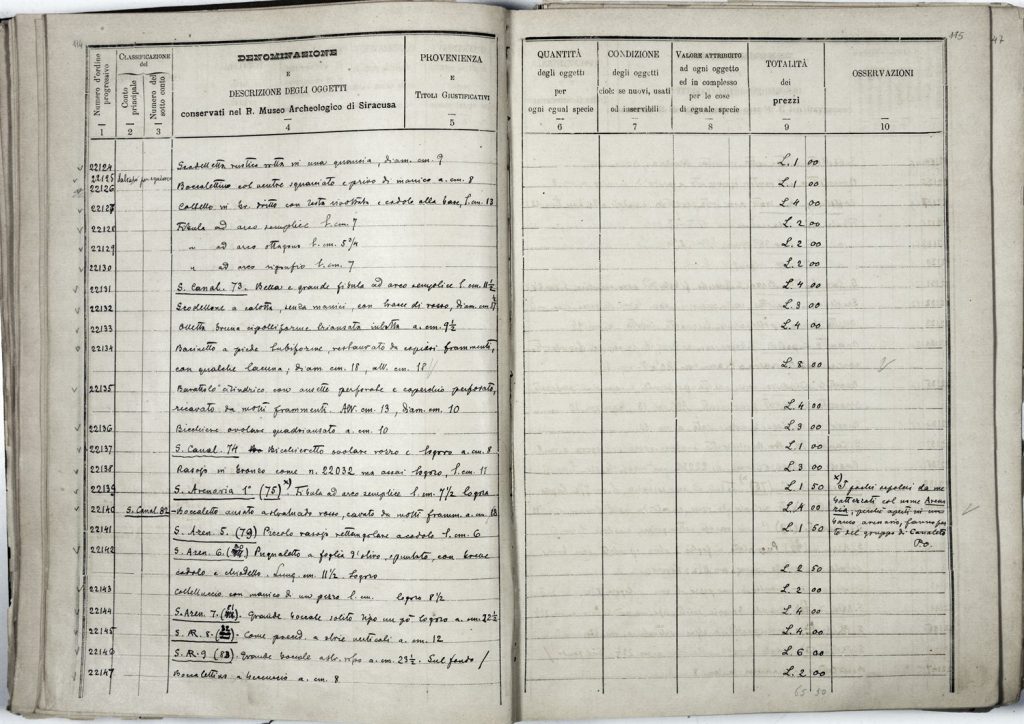 114
Numero d'ordine progressivo
CLASSIFICAZIONE del
Conto principale
Numero del sotto conto
DENOMINAZIONE
E
DESCRIZIONE DEGLI OGGETTI
conservati nel R. Museo Archeologico di Siracusa
PROVENIENZA
E
TITOLI GIUSTIFICATIVI
1 2 3 4 5
22124 Scodelletta rustica rotta in una quancia, diam. cm. 9
22125
22126 Boccalettino col ventre squarciato e privo di manico a. cm. 8
22127 Coltello in br. dritto con costa rivoltata e codolo alla base, l. cm. 13
22128 Fibula ad arco semplice l. cm. 7
22129 " ad arco ottagono l. cm. 5 3/4
22130 " ad arco rigonfio l. cm. 7
22131 S. Canal. 73. Bella e grande fibula ad arco semplice l. cm. 11 1/2
22132 Scodellone a calotta, senza manici, con tracce di rosso, diam. cm.
22133 Olletta bruna cipolliforme biansata intatta a. cm. 9 1/2
22134 Bacinetto a piede tubiforme, restaurato da copiosi frammenti,
con qualche lacuna; diam. cm. 18, alt. cm. 18
22135 Barattolo cilindrico con ansette perforate e coperchio perforato,
ricavato da molti frammenti. Alt. cm. 13, diam. cm. 10
22136 Bicchiere ovolare quadriansato a. cm. 10
22137 S. Canal. 74 Bicchieretto ovolare rozzo e logoro a. cm. 8
22138 Rasojo in bronzo come n. 22032 ma assai logoro, l. cm. 11
22139 S. Arenaria 1ª (75) x) Fibula ad arco semplice l. cm. 7 1/2 logora
22140 S. Canal. 82 Boccaletto ansato rosso, cavato da molti framm. a. cm.
22141 S. Aren. 5. (79) Piccolo rasojo rettangolare a codolo l. cm. 6
22142 S. Aren. 6. Pugnaletto a foglia d'olivo, spuntato, con breve
codolo e chiodetto. Lung. cm. 11 1/2. logoro
22143 Coltelluccio con manico di un pezzo l. cm. logoro 8 1/2
22144 S. Aren. 7. (81). Grande boccale solito tipo un pò logoro a. cm. 22 1/2
22145 S. AR. 8. - Come preced. a strie verticali a. cm. 12
22146 S. AR. 9 (83). Grande boccale a. cm. 23 1/2. Sul fondo /
22147 Boccalettino a. cm. 8
115
47
QUANTITÀ
degli oggetti
per
ogni egual specie
CONDIZIONE
degli oggetti
cioè: se nuovi, usati
od inservibili
VALORE ATTRIBUITO
ad ogni oggetto
ed in complesso
per le cose
di eguale specie
TOTALITÀ
dei
prezzi
OSSERVAZIONI
6 7 8 9 10
L. 1 00
L. 1 00
L. 4 00
L. 2 00
L. 2 00
L. 2 00
L. 4 00
L. 3 00
L. 4 00
L. 8 00
L. 4 00
L. 3 00
L. 1 00
L. 3 00
L. 1 50
L. 4 00
L. 1 50
L. 2 50
L. 2 00
L. 4 00
L. 4 00
L. 6 00
L. 2 00
65 50
x) I pochi sepolcri da me
battezzati col nome Arena
ria, perchè aperti in un
banco arenario, fanno par
te del gruppo di Canaleto
P.O.